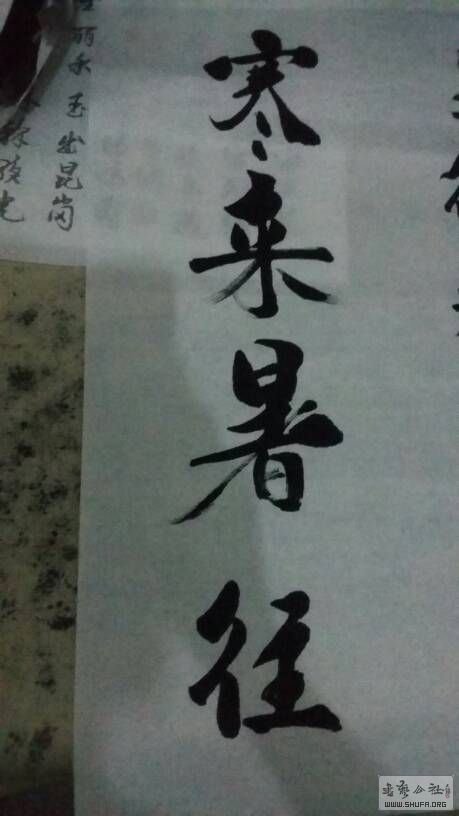 寒来暑往
丽水 玉出昆岗
书艺公社
WWW.SHUFA.ORG